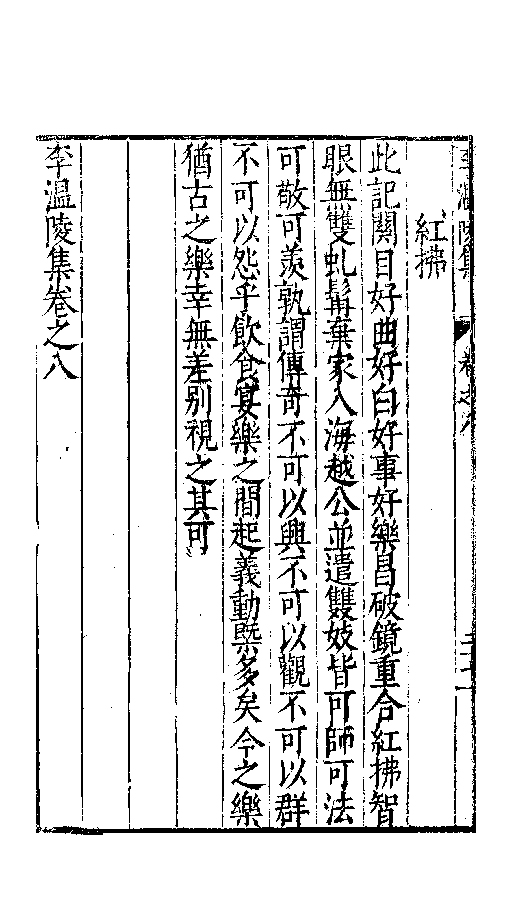 李溫陵集 卷之八
紅拂
此記關目好曲好白好事好樂昌破鏡重合紅拂智
眼無雙虬髯棄家入海越公並遣雙妓皆可師可法
可敬可羨孰謂傳奇不可以興不可以觀不可以群
不可以怨乎飲食宴樂之間起義動槩多矣今之樂
猶古之樂幸無差别視之其可
李溫陵集卷之八